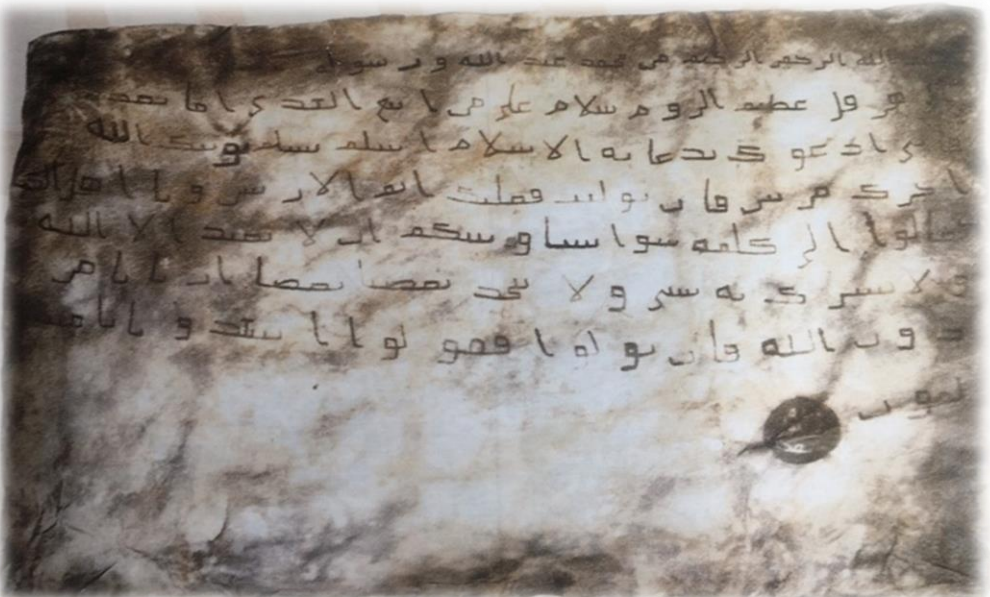 الله الرحمن الرحيم من محمد عبد الله و رسوله
هرقل عظيم الروم سلام على من اتبع الهدى اما بعد
ادعوك بدعاية الاسلام اسلم تسلم يوتك الله
اجرك مرتين فان توليت فعليك اثم الاريسين و يا اهل الكتاب
تعالوا الى كلمة سوا بيننا و بينكم ان لا نعبد الا الله
و لا نشرك به شي و لا يتخذ بعضنا بعضا اربابا من
دون الله فان تولوا فقولوا اشهدوا بانا مسلمون